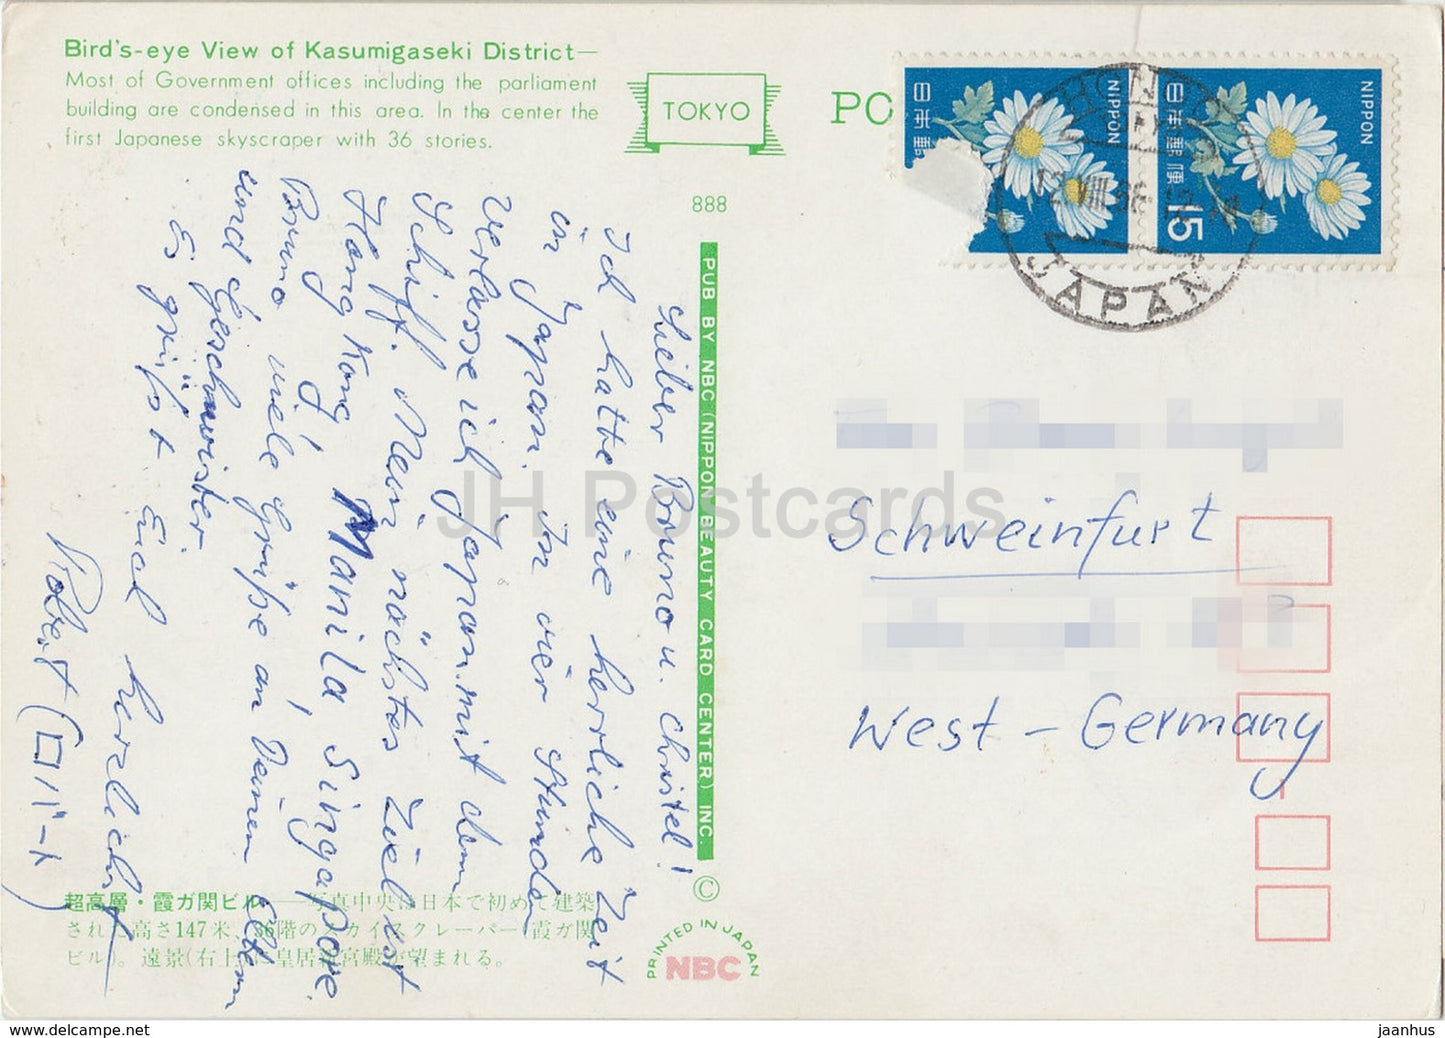 Bird's-eye View of Kasumigaseki District—
Most of Government offices including the parliament
building are condensed in this area. In the center the
first Japanese skyscraper with 36 stories.
TOKYO
888
PC
日本郵
NIPPON
日本郵便
15
NIPPON
HONGO
TOKYO
12.VIII.
JAPAN
Lieber Bruno u. Christel!
Ich hatte eine herrliche Zeit
in Japan. In vier Stunden
Verlasse ich Japan mit dem
Schiff. Mein nächstes Ziel ist
Hong Kong, Manila, Singapore.
Bruno viele Grüße an Deinen Eltern
und Geschwister.
Es grüßt Euch herzlichst
Robert (ロバート)
PUB BY NBC (NIPPON BEAUTY CARD CENTER) INC.
©
PRINTED IN JAPAN
NBC
Schweinfurt
West - Germany
超高層・霞ガ関ビル 写真中央は日本で初めて建築
された高さ147米、36階のスカイスクレーパー(霞ガ関
ビル)。遠景(右上)に皇居新宮殿が望まれる。
JH Postcards
https://www.delcampe.net
jaanhus